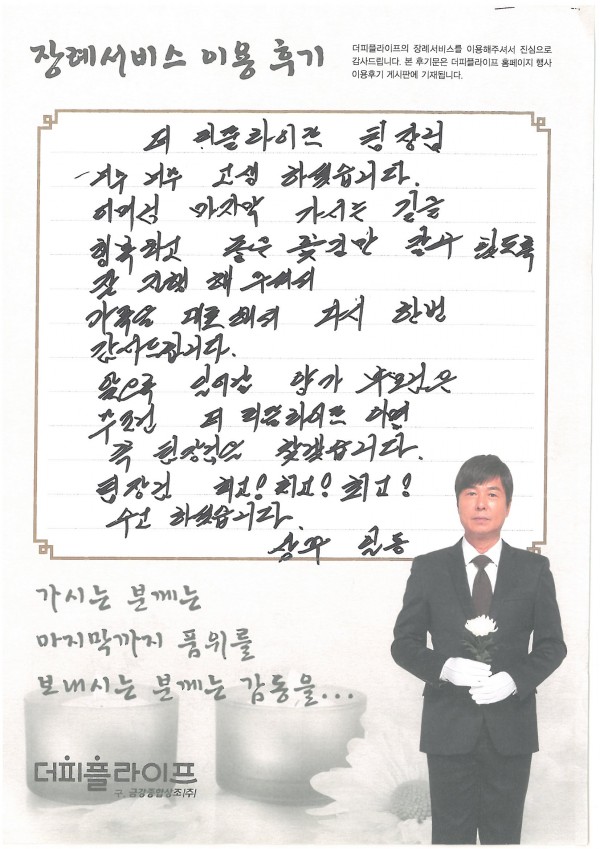 장례서비스 이용 후기
더피플라이프의 장례서비스를 이용해주셔서 진심으로
감사드립니다. 본 후기문은 더피플라이프 홈페이지 행사
이용후기 게시판에 기재됩니다.
더 피플라이프 팀장님
너무 너무 고생 하셨습니다.
어머님 마지막 가시는 길을
행복하고 좋은 꽃길만 갈수 있도록
잘 진행 해 주셔서
가족을 대표해서 다시 한번
감사드립니다.
앞으로 양가 부모님은
무조건 더 피플라이프
꼭 팀장님을 찾겠습니다.
팀장님 최고! 최고! 최고!
수고 하셨습니다.
상주 일동
가시는 분께는
마지막까지 품위를
보내시는 분께는 감동을...
더피플라이프
구. 금강종합상조(주)